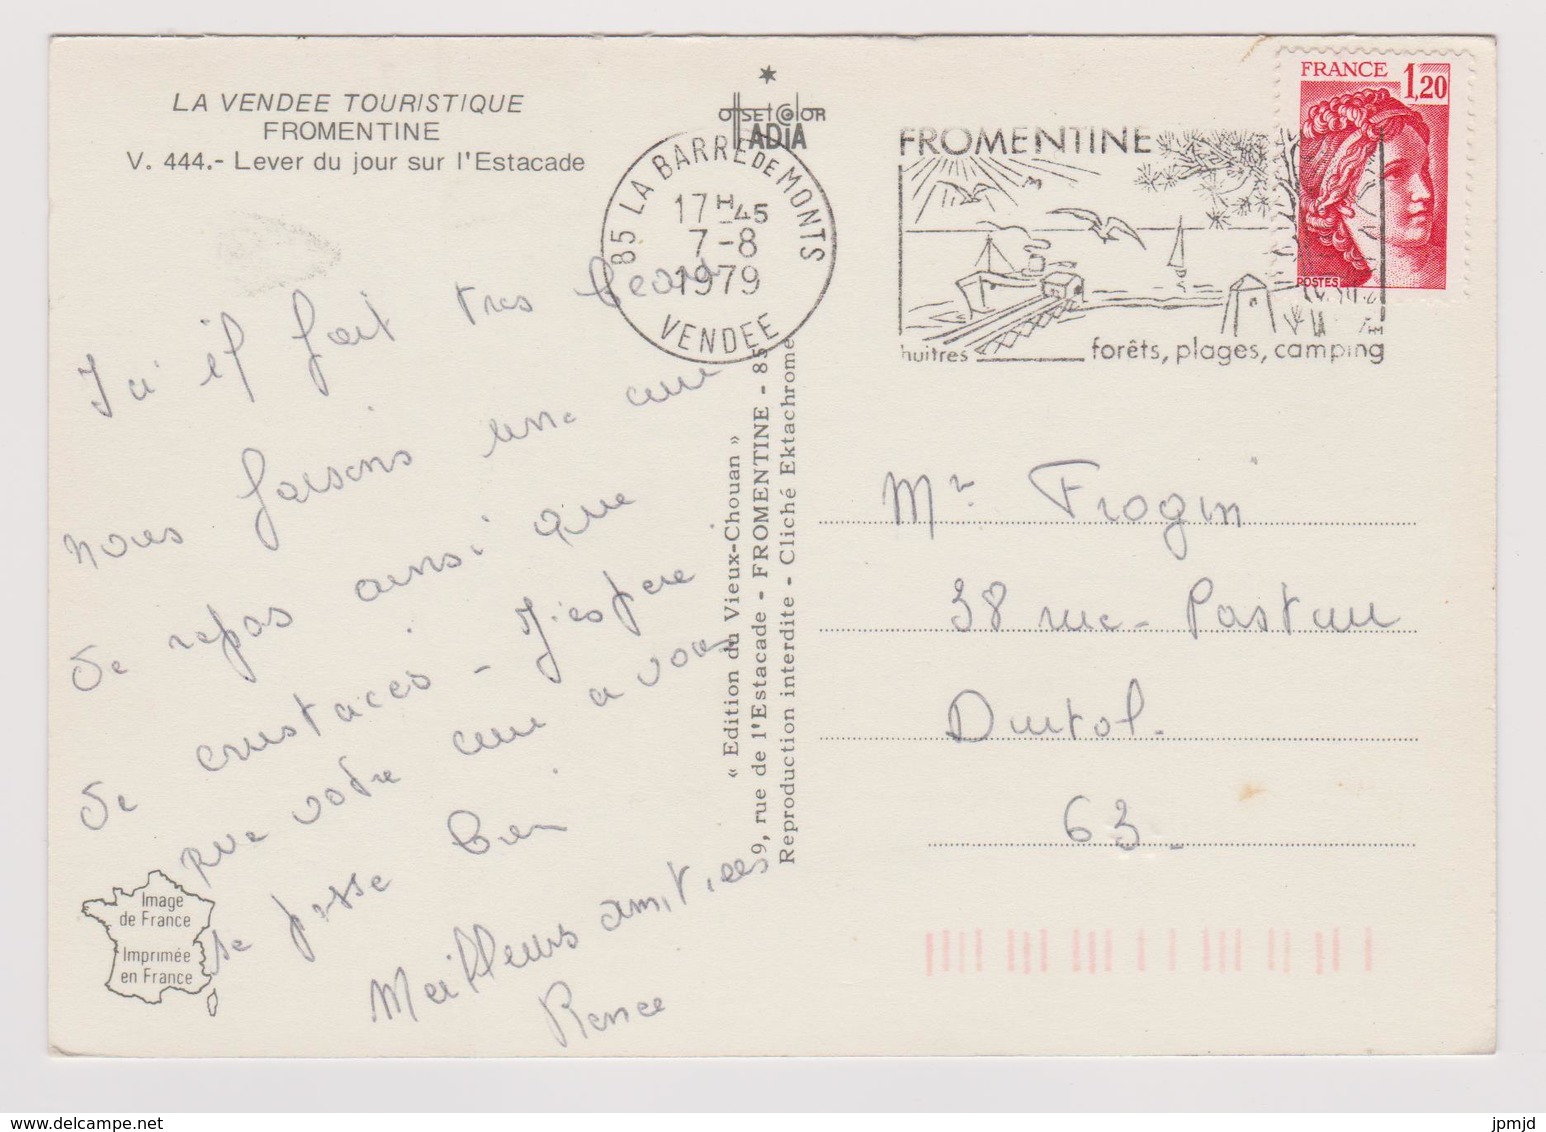 LA VENDEE TOURISTIQUE
FROMENTINE
V. 444.- Lever du jour sur l'Estacade
OffsetColor
ADIA
85 LA BARRE DE MONTS
17H45
7-8
1979
VENDEE
FROMENTINE
huitres
forêts, plages, camping
FRANCE 1,20
POSTES
Ici il fait tres beau
nous faisons une cure
de repas ainsi que
de crustaces - J'espere
que votre cure a vous
se passe bien
Meilleurs amities
Renee
« Edition du Vieux-Chouan »
9, rue de l'Estacade - FROMENTINE - 85
Reproduction interdite - Cliché Ektachrome
Mr Frogin
38 rue Pasteur
Durtol.
63_
Image
de France
Imprimée
en France
delcampe.net
jpmjd